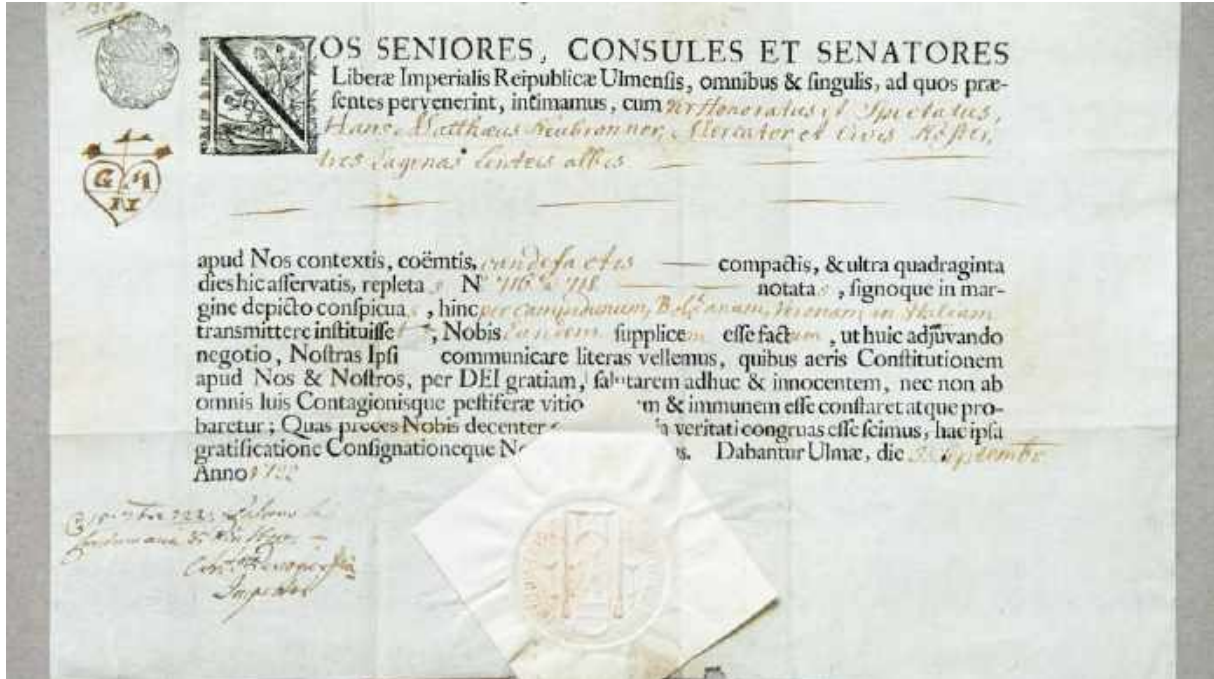 NOS SENIORES, CONSULES ET SENATORES
Liberæ Imperialis Reipublicæ Ulmensis, omnibus & singulis, ad quos præ-
sentes pervenerint, intimamus, cum Honoratus et Spectatus,
Hans Matthæus Neubronner, Mercator et Civis
tres Saginas linteis albis
G M
apud Nos contextis, coëmtis, candefactis compactis, & ultra quadraginta
dies hic asservatis, repletas Nº 716 718 notatas, signoque in mar-
gine depicto conspicuas, hinc per Campidonum, Bolsanam, Veronam in Italiam
transmittere instituisset, Nobis supplicem esse factum, ut huic adjuvando
negotio, Nostras Ipsi communicare literas vellemus, quibus aeris Constitutionem
apud Nos & Nostros, per DEI gratiam, salutarem adhuc & innocentem, nec non ab
omnis luis Contagionisque pestiferæ vitio & immunem esse constaret atque pro-
baretur; Quas preces Nobis decenter veritati congruas esse scimus, hac ipsa
gratificatione Consignationeque Dabantur Ulmæ, die Septembr
Anno 1722